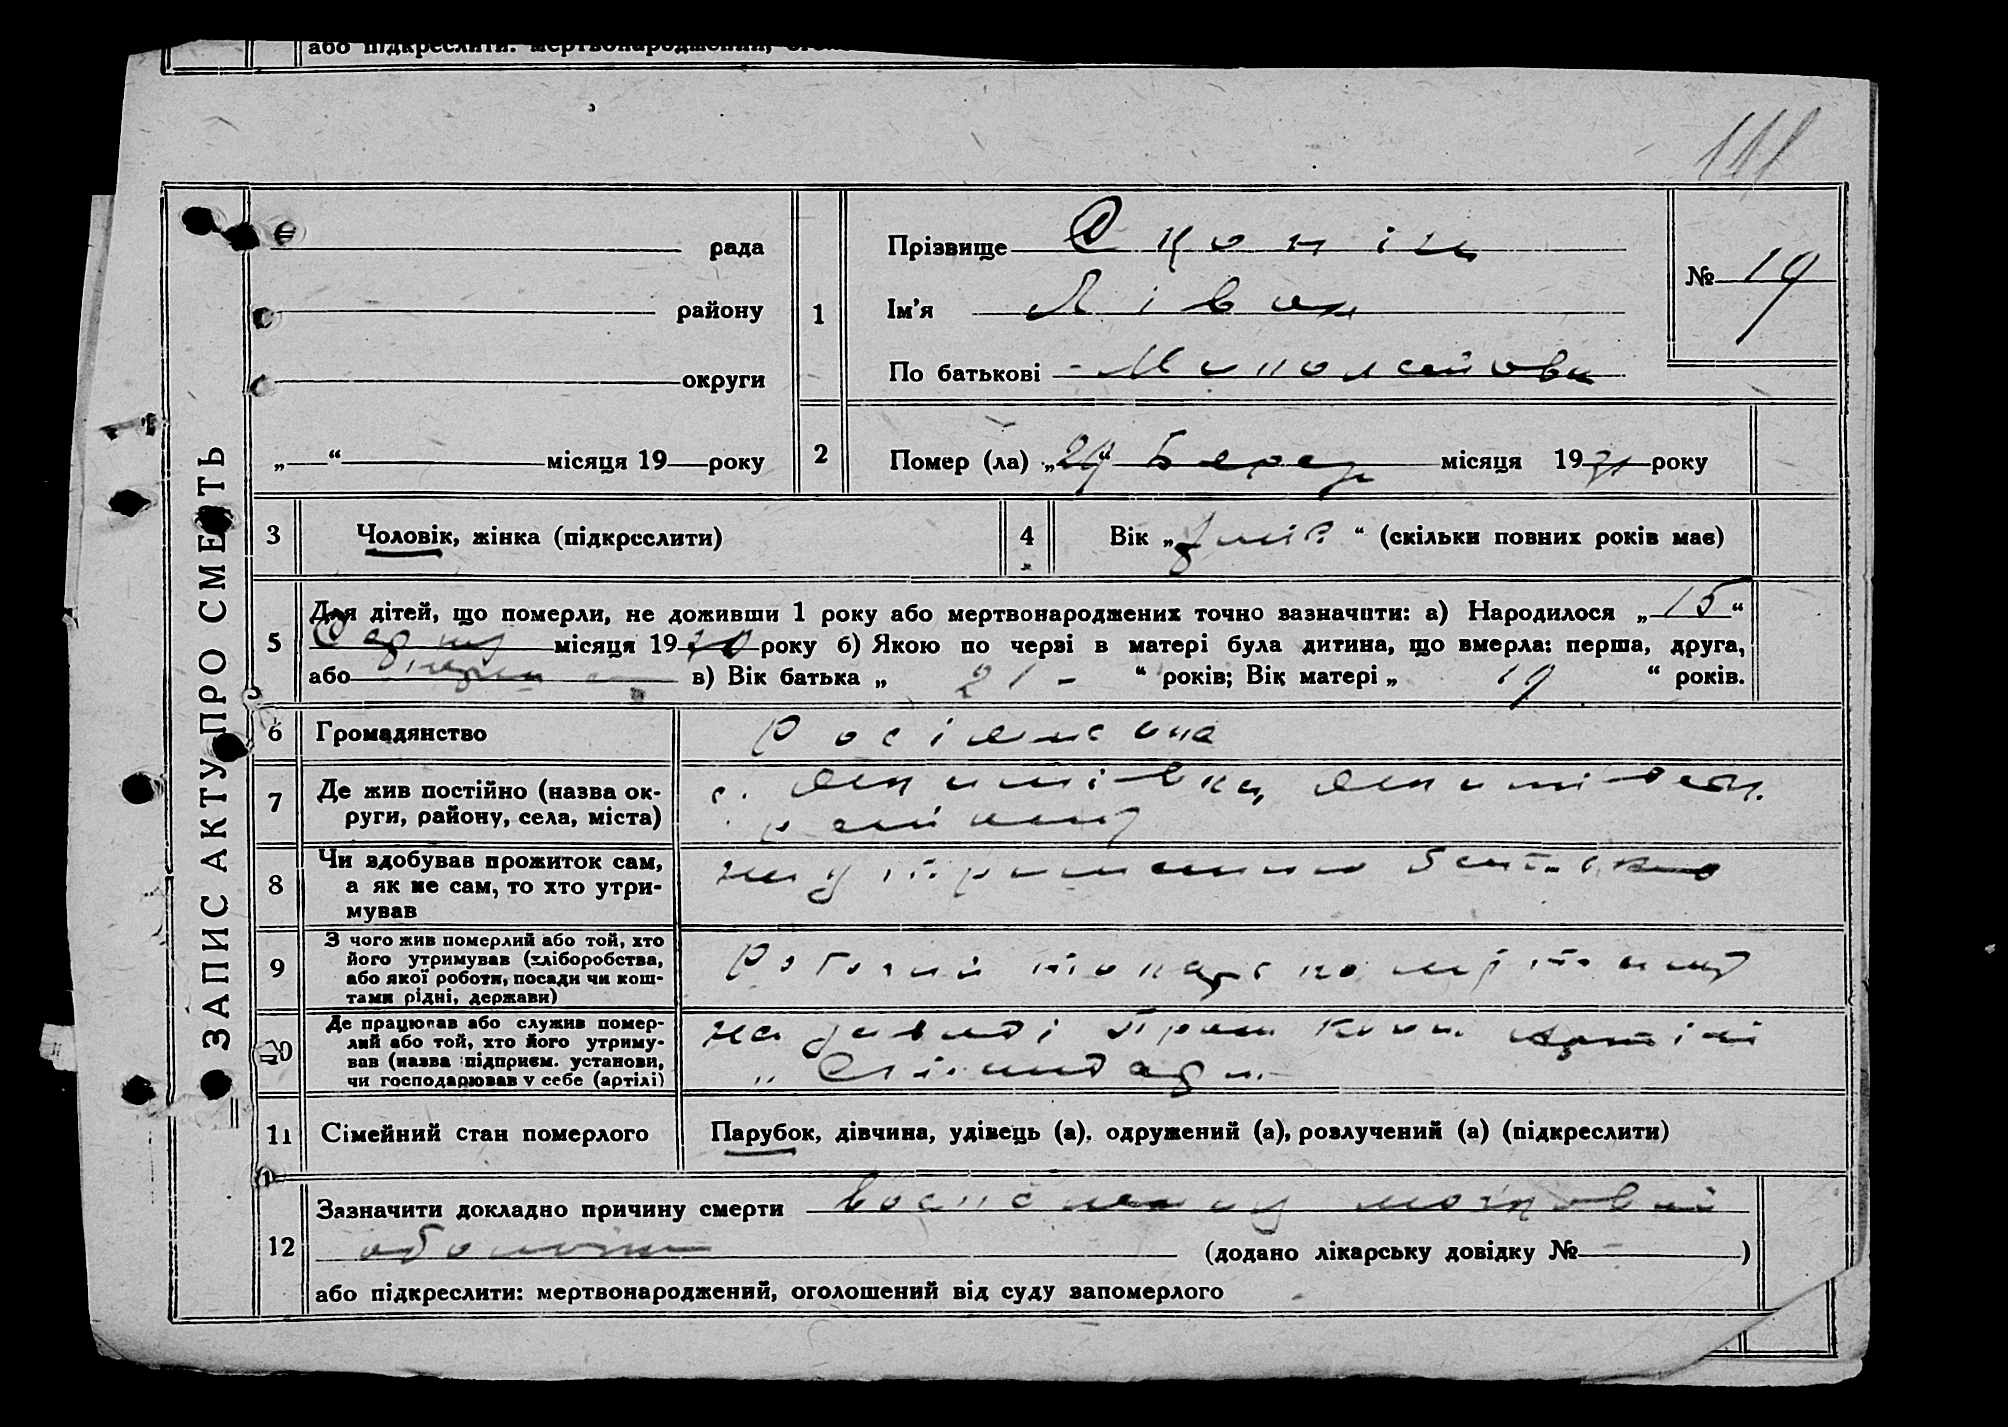 або підкреслити: мертвонароджений,
111
ЗАПИС АКТУ ПРО СМЕРТЬ
рада
району
округи
„ “ місяця 19 року
1
Прізвище
Ім’я
По батькові
№ 19
2
Помер (ла) „29“ Берез місяця 1931 року
3
Чоловік, жінка (підкреслити)
4
Вік „ “ (скільки повних років має)
5
Для дітей, що померли, не доживши 1 року або мертвонароджених точно зазначити: а) Народилося „15“
місяця 1930 року б) Якою по черзі в матері була дитина, що вмерла: перша, друга,
або в) Вік батька „ 21 - “ років; Вік матері „ 19 “ років.
6
Громадянство
7
Де жив постійно (назва ок-
руги, району, села, міста)
с.
району
8
Чи здобував прожиток сам,
а як не сам, то хто утри-
мував
на утриманню батьків
9
З чого жив померлий або той, хто
його утримував (хліборобства,
або якої роботи, посади чи кош-
тами рідні, держави)
Робочий токарь по
10
Де працював або служив помер-
лий або той, хто його утриму-
вав (назва підприєм. установи,
чи господарював у себе (артілі)
на заводі Пром Кооп. Артілі
11
Сімейний стан померлого
Парубок, дівчина, удівець (а), одружений (а), розлучений (а) (підкреслити)
12
Зазначити докладно причину смерти мозговий
оболочки (додано лікарську довідку № )
або підкреслити: мертвонароджений, оголошений від суду запомерлого